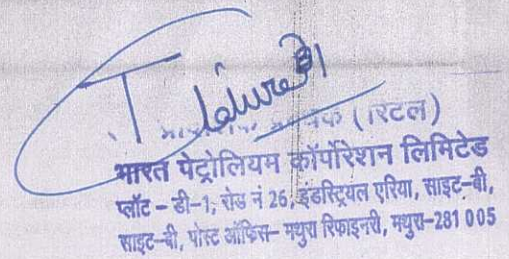 (रिटेल)
भारत पेट्रोलियम कॉर्पोरेशन लिमिटेड
प्लॉट - डी-1, रोड नं 26, इंडस्ट्रियल एरिया, साइट-बी,
साइट-बी, पोस्ट ऑफिस- मथुरा रिफाइनरी, मथुरा-281 005